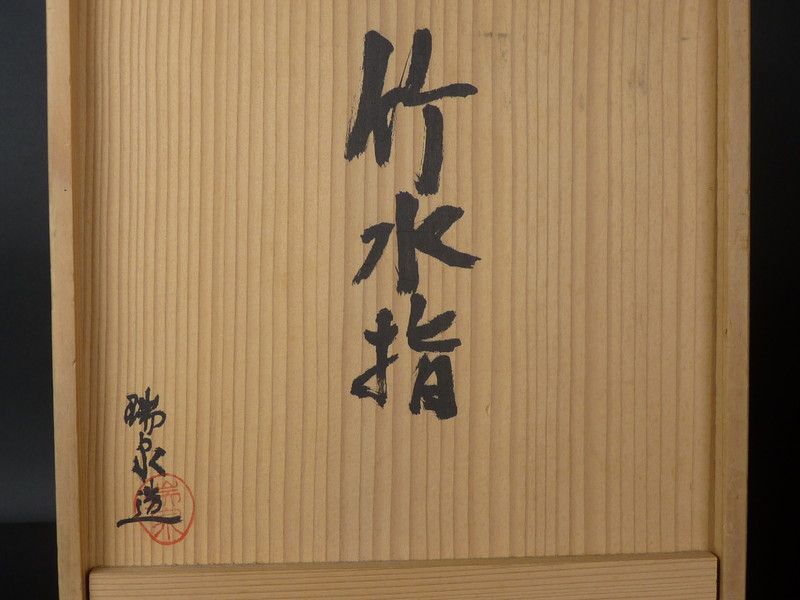 竹水指
瑞泉造